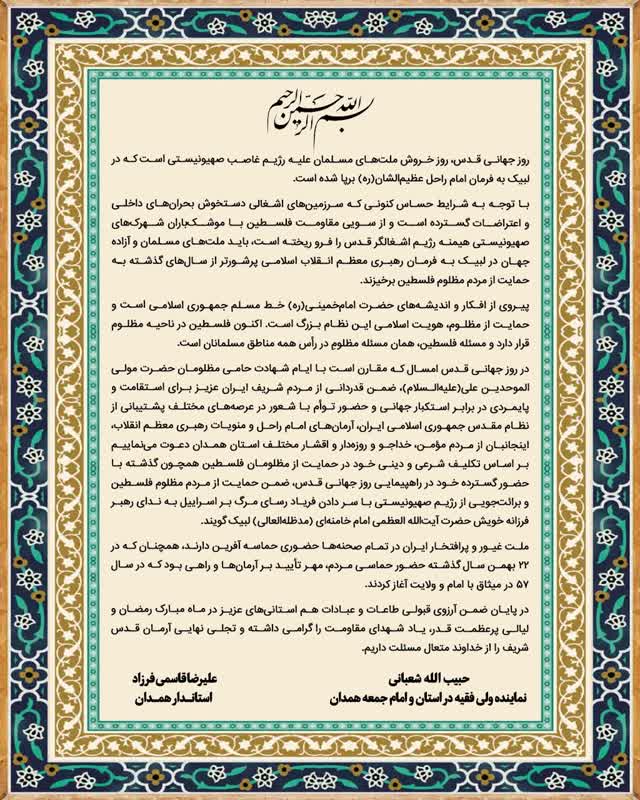 بسم الله الرحمن الرحیم
روز جهانی قدس، روز خروش ملت‌های مسلمان علیه رژیم غاصب صهیونیستی است که در
لبیک به فرمان امام راحل عظیم‌الشان(ره) برپا شده است.
با توجه به شرایط حساس کنونی که سرزمین‌های اشغالی دستخوش بحران‌های داخلی
و اعتراضات گسترده است و از سویی مقاومت فلسطین با موشک‌باران شهرک‌های
صهیونیستی هیمنه رژیم اشغالگر قدس را فرو ریخته است، باید ملت‌های مسلمان و آزاده
جهان در لبیک به فرمان رهبری معظم انقلاب اسلامی پرشورتر از سال‌های گذشته به
حمایت از مردم مظلوم فلسطین برخیزند.
پیروی از افکار و اندیشه‌های حضرت امام‌خمینی(ره) خط مسلم جمهوری اسلامی است و
حمایت از مظلوم، هویت اسلامی این نظام بزرگ است. اکنون فلسطین در ناحیه مظلوم
قرار دارد و مسئله فلسطین، همان مسئله مظلوم در رأس همه مناطق مسلمانان است.
در روز جهانی قدس امسال که مقارن است با ایام شهادت حامی مظلومان حضرت مولی
الموحدین علی(علیه‌السلام)، ضمن قدردانی از مردم شریف ایران عزیز برای استقامت و
پایمردی در برابر استکبار جهانی و حضور توأم با شعور در عرصه‌های مختلف پشتیبانی از
نظام مقدس جمهوری اسلامی ایران، آرمان‌های امام راحل و منویات رهبری معظم انقلاب،
اینجانبان از مردم مؤمن، خداجو و روزه‌دار و اقشار مختلف استان همدان دعوت می‌نماییم
بر اساس تکلیف شرعی و دینی خود در حمایت از مظلومان فلسطین همچون گذشته با
حضور گسترده خود در راهپیمایی روز جهانی قدس، ضمن حمایت از مردم مظلوم فلسطین
و برائت‌جویی از رژیم صهیونیستی با سر دادن فریاد رسای مرگ بر اسراییل به ندای رهبر
فرزانه خویش حضرت آیت‌الله العظمی امام خامنه‌ای (مدظله‌العالی) لبیک گویند.
ملت غیور و پرافتخار ایران در تمام صحنه‌ها حضوری حماسه آفرین دارند، همچنان که در
۲۲ بهمن سال گذشته حضور حماسی مردم، مهر تأیید بر آرمان‌ها و راهی بود که در سال
۵۷ در میثاق با امام و ولایت آغاز کردند.
در پایان ضمن آرزوی قبولی طاعات و عبادات هم استانی‌های عزیز در ماه مبارک رمضان و
لیالی پرعظمت قدر، یاد شهدای مقاومت را گرامی داشته و تجلی نهایی آرمان قدس
شریف را از خداوند متعال مسئلت داریم.
حبیب الله شعبانی
نماینده ولی فقیه در استان و امام جمعه همدان
علیرضا قاسمی‌فرزاد
استاندار همدان